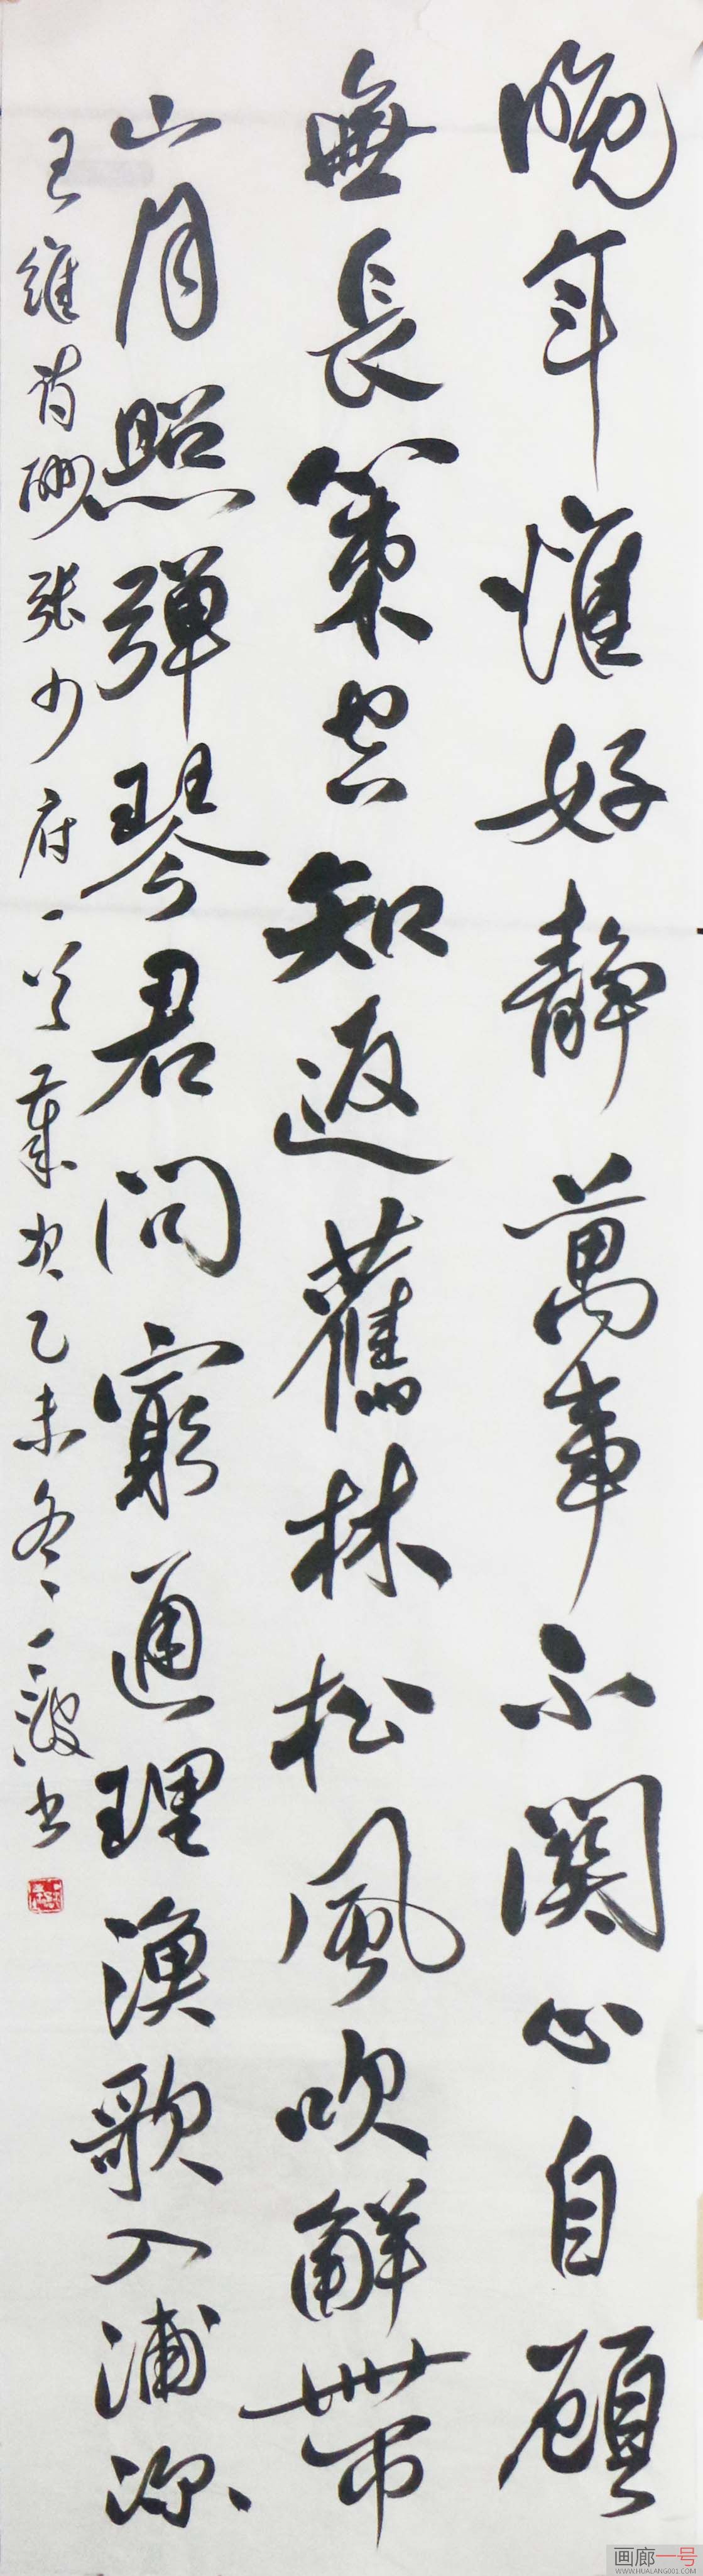 晚年惟好靜萬事不關心自顧
無長策空知返舊林松風吹解帶
山月照弹琴君問窮通理漁歌入浦深
王維詩酬張少府一首歲次乙未冬一波书
画廊一号
WWW.HUALANG001.COM